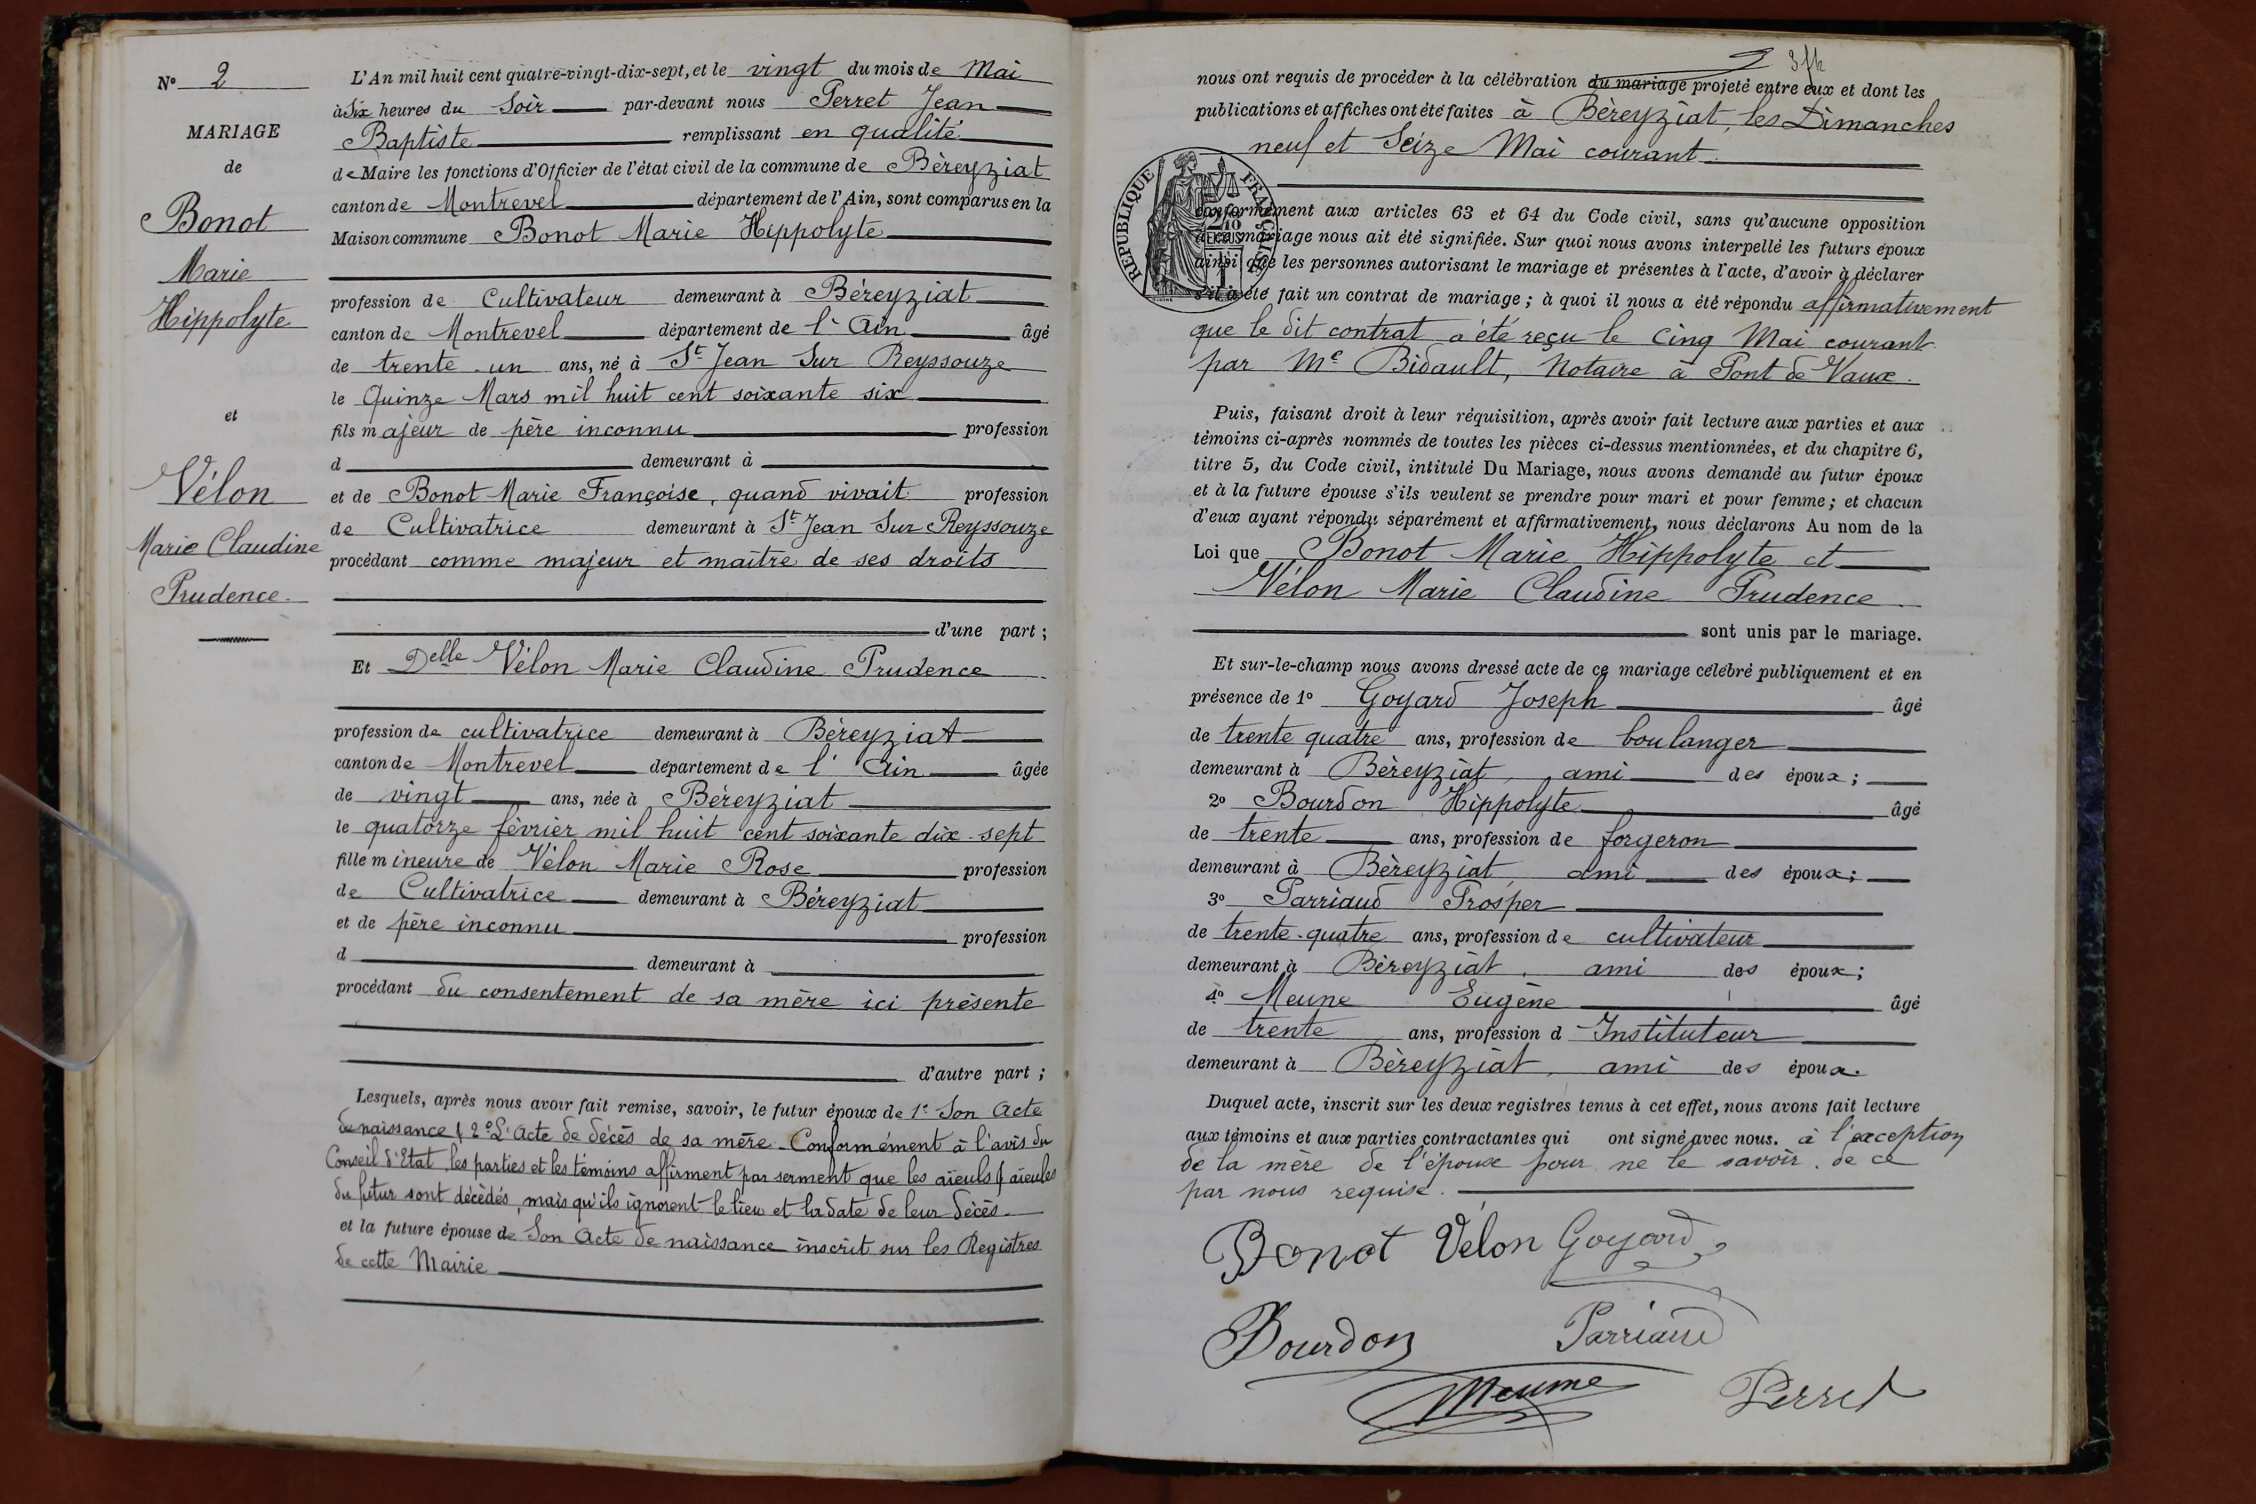 N° 2
MARIAGE
de
Bonot
Marie
Hippolyte
et
Vélon
Marie Claudine
Prudence.
L'An mil huit cent quatre-vingt-dix-sept, et le vingt du mois de Mai
à Six heures du Soir par-devant nous Perret Jean
Baptiste remplissant en qualité
de Maire les fonctions d'Officier de l'état civil de la commune de Béreyziat
canton de Montrevel département de l'Ain, sont comparus en la
Maison commune Bonot Marie Hippolyte
profession de Cultivateur demeurant à Béreyziat
canton de Montrevel département de l'Ain âgé
de trente-un ans, né à St Jean Sur Reyssouze
le Quinze Mars mil huit cent soixante six
fils majeur de père inconnu profession
d demeurant à
et de Bonot Marie Françoise, quand vivait profession
de Cultivatrice demeurant à St Jean Sur Reyssouze
procédant comme majeur et maître de ses droits
d'une part ;
Et Delle Vélon Marie Claudine Prudence
profession de cultivatrice demeurant à Béreyziat
canton de Montrevel département de l'Ain âgée
de vingt ans, née à Béreyziat
le quatorze février mil huit cent soixante dix-sept
fille mineure de Vélon Marie Rose profession
de Cultivatrice demeurant à Béreyziat
et de père inconnu profession
d demeurant à
procédant du consentement de sa mère ici présente
d'autre part ;
Lesquels, après nous avoir fait remise, savoir, le futur époux de 1° Son Acte
de naissance & 2° L'Acte de décès de sa mère. Conformément à l'avis du
Conseil d'Etat, les parties et les témoins affirment par serment que les aïeuls & aïeules
du futur sont décédés, mais qu'ils ignorent le lieu et la date de leur décès.
et la future épouse de Son Acte de naissance inscrit sur les Registres
de cette Mairie
nous ont requis de procéder à la célébration du mariage projeté entre eux et dont les
publications et affiches ont été faites à Béreyziat, les Dimanches
neuf et Seize Mai courant
REPUBLIQUE FRANÇAISE
conformément aux articles 63 et 64 du Code civil, sans qu'aucune opposition
à ce mariage nous ait été signifiée. Sur quoi nous avons interpellé les futurs époux
ainsi que les personnes autorisant le mariage et présentes à l'acte, d'avoir à déclarer
s'il a été fait un contrat de mariage ; à quoi il nous a été répondu affirmativement
que le dit contrat a été reçu le cinq Mai courant
par Me Bidault, Notaire à Pont de Vaux.
Puis, faisant droit à leur réquisition, après avoir fait lecture aux parties et aux
témoins ci-après nommés de toutes les pièces ci-dessus mentionnées, et du chapitre 6,
titre 5, du Code civil, intitulé Du Mariage, nous avons demandé au futur époux
et à la future épouse s'ils veulent se prendre pour mari et pour femme ; et chacun
d'eux ayant répondu séparément et affirmativement, nous déclarons Au nom de la
Loi que Bonot Marie Hippolyte et
Vélon Marie Claudine Prudence
sont unis par le mariage.
Et sur-le-champ nous avons dressé acte de ce mariage célébré publiquement et en
présence de 1° Goyard Joseph âgé
de trente quatre ans, profession de boulanger
demeurant à Béreyziat, ami des époux ;
2° Bourdon Hippolyte âgé
de trente ans, profession de forgeron
demeurant à Béreyziat, ami des époux ;
3° Parriaud Prosper
de trente-quatre ans, profession de cultivateur
demeurant à Béreyziat, ami des époux ;
4° Meune Eugène âgé
de trente ans, profession d'Instituteur
demeurant à Béreyziat, ami des époux.
Duquel acte, inscrit sur les deux registres tenus à cet effet, nous avons fait lecture
aux témoins et aux parties contractantes qui ont signé avec nous. à l'exception
de la mère de l'épouse pour ne le savoir, de ce
par nous requise.
Bonot Vélon Goyard
Bourdon Parriaud
Meune Perret